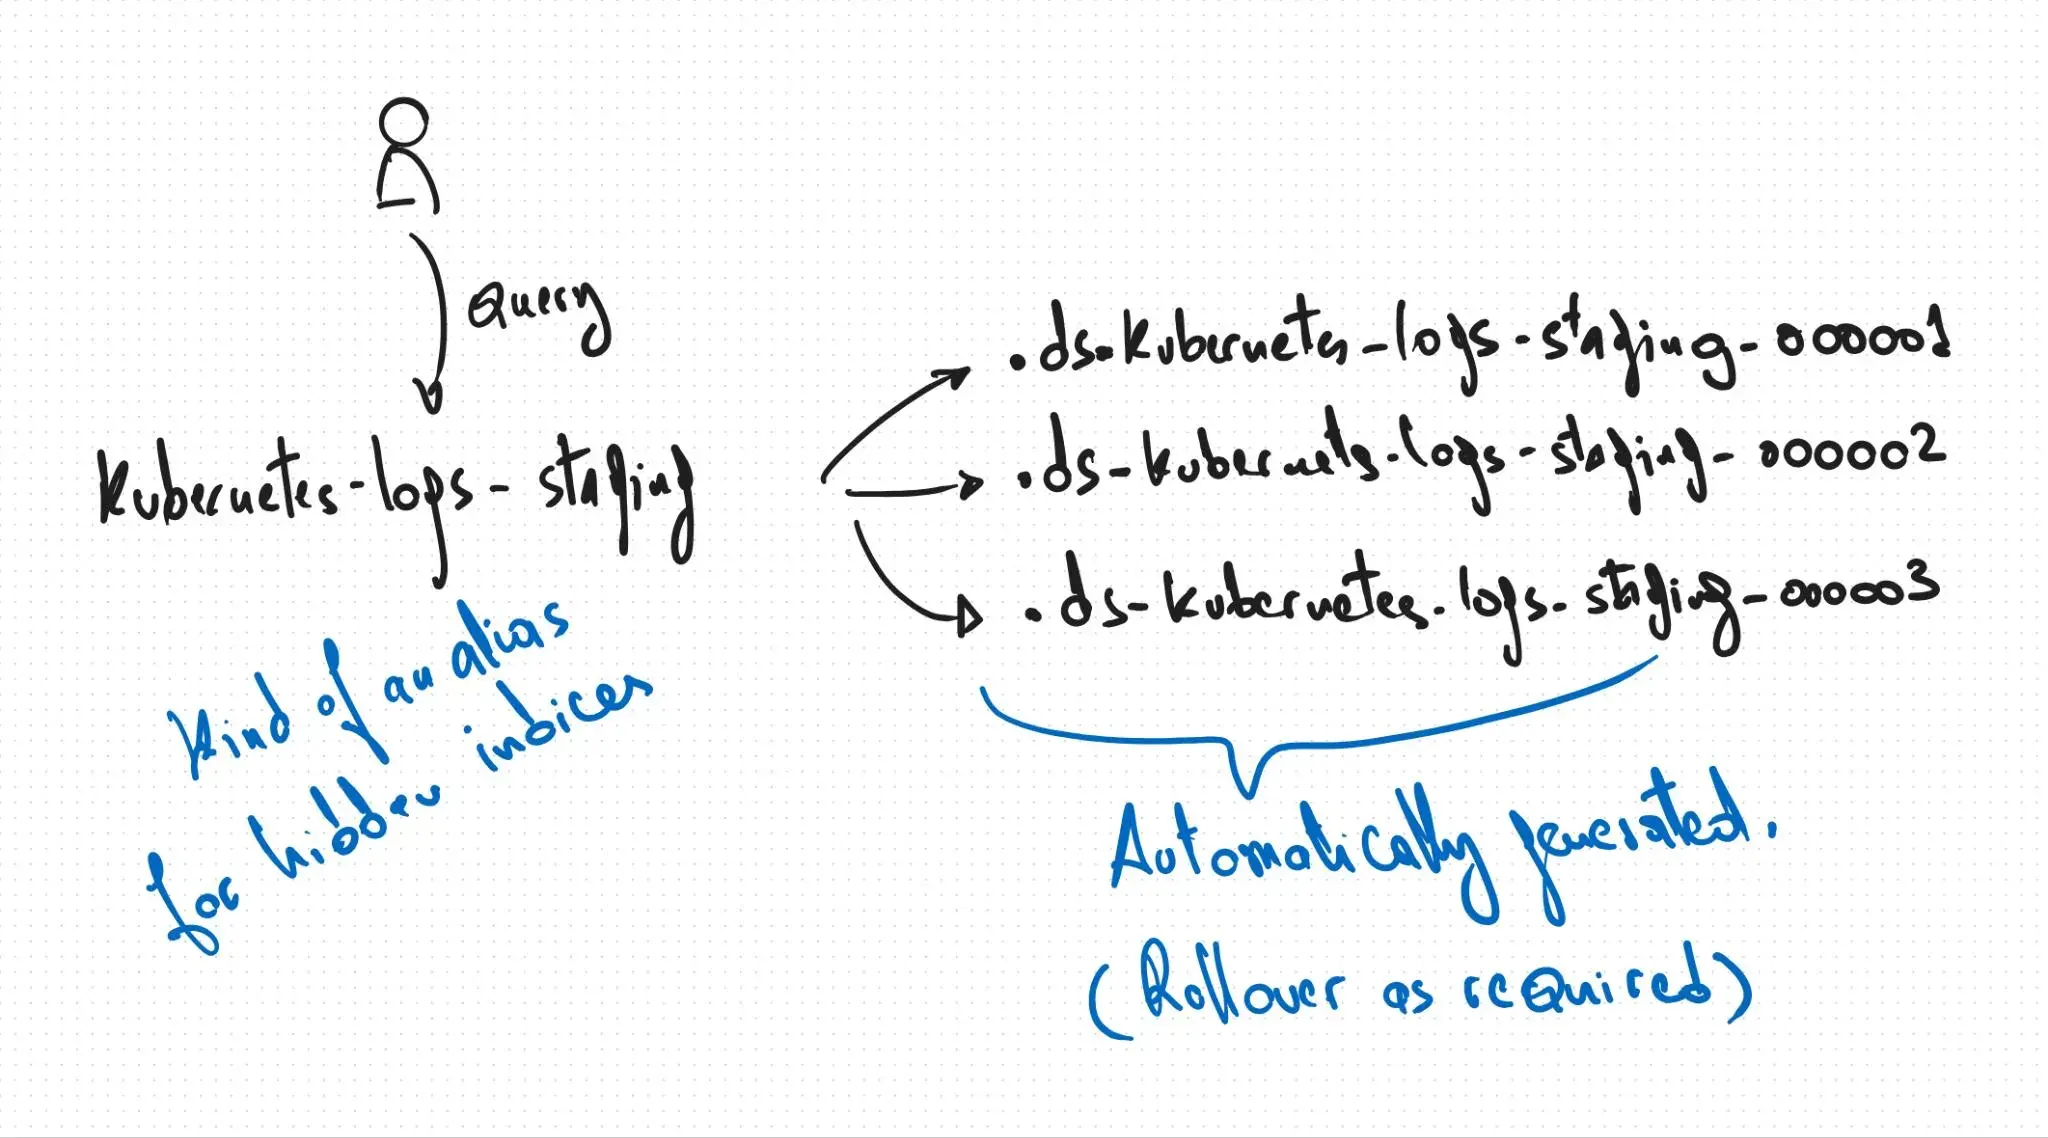 Query
Kubernetes-logs-staging
.ds-kubernetes-logs-staging-000001
.ds-kubernets-logs-staging-000002
.ds-kubernetes-logs-staging-000003
Kind of an alias
for hidden indices
Automatically generated.
(Rollover as required)